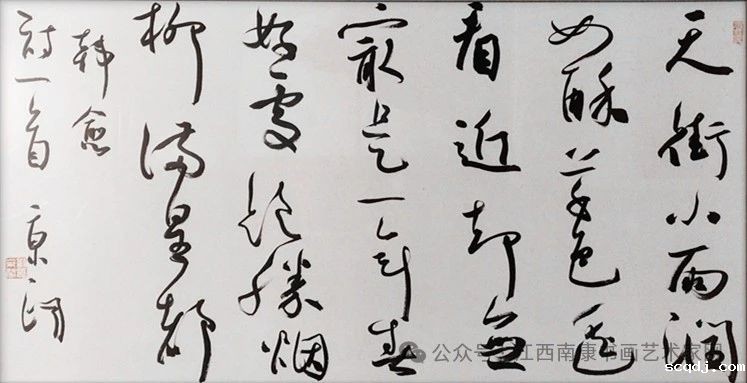 天街小雨潤
如酥草色遥
看近却無
最是一年春
好處絕勝烟
柳滿皇都
韓愈
詩一首
公众号 江西南康书画艺术家网
scqdj.com